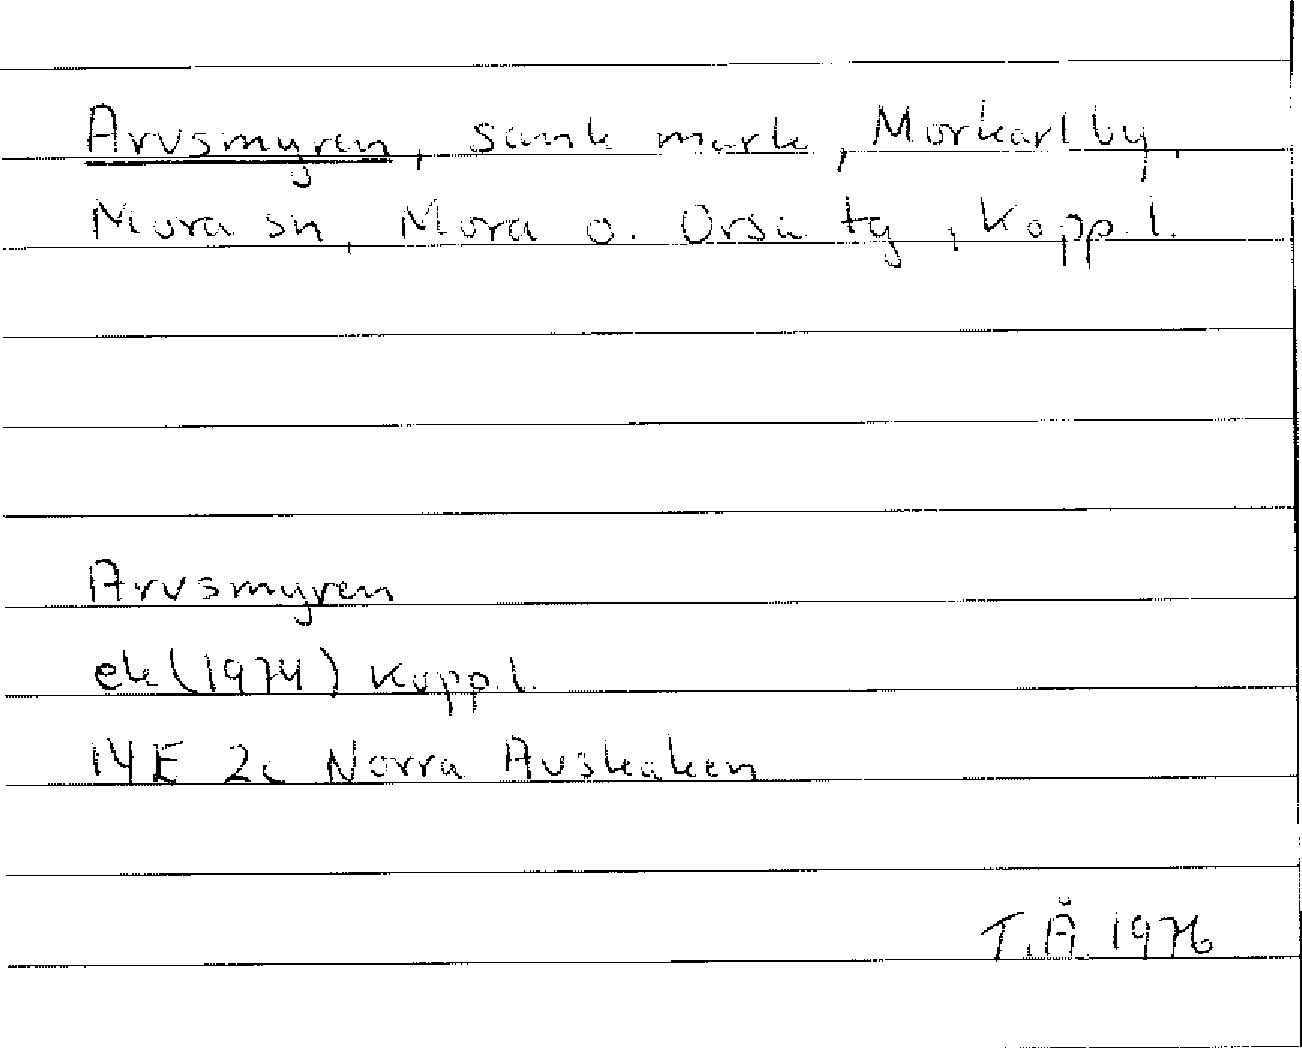 Arvsmyren, sank mark, Morkarlby,
Mora sn, Mora o. Orsa tg, Kopp.l.
Arvsmyren
ek (1974) Kopp.l.
14E 2c Norra Auskaken
T.Å. 1976